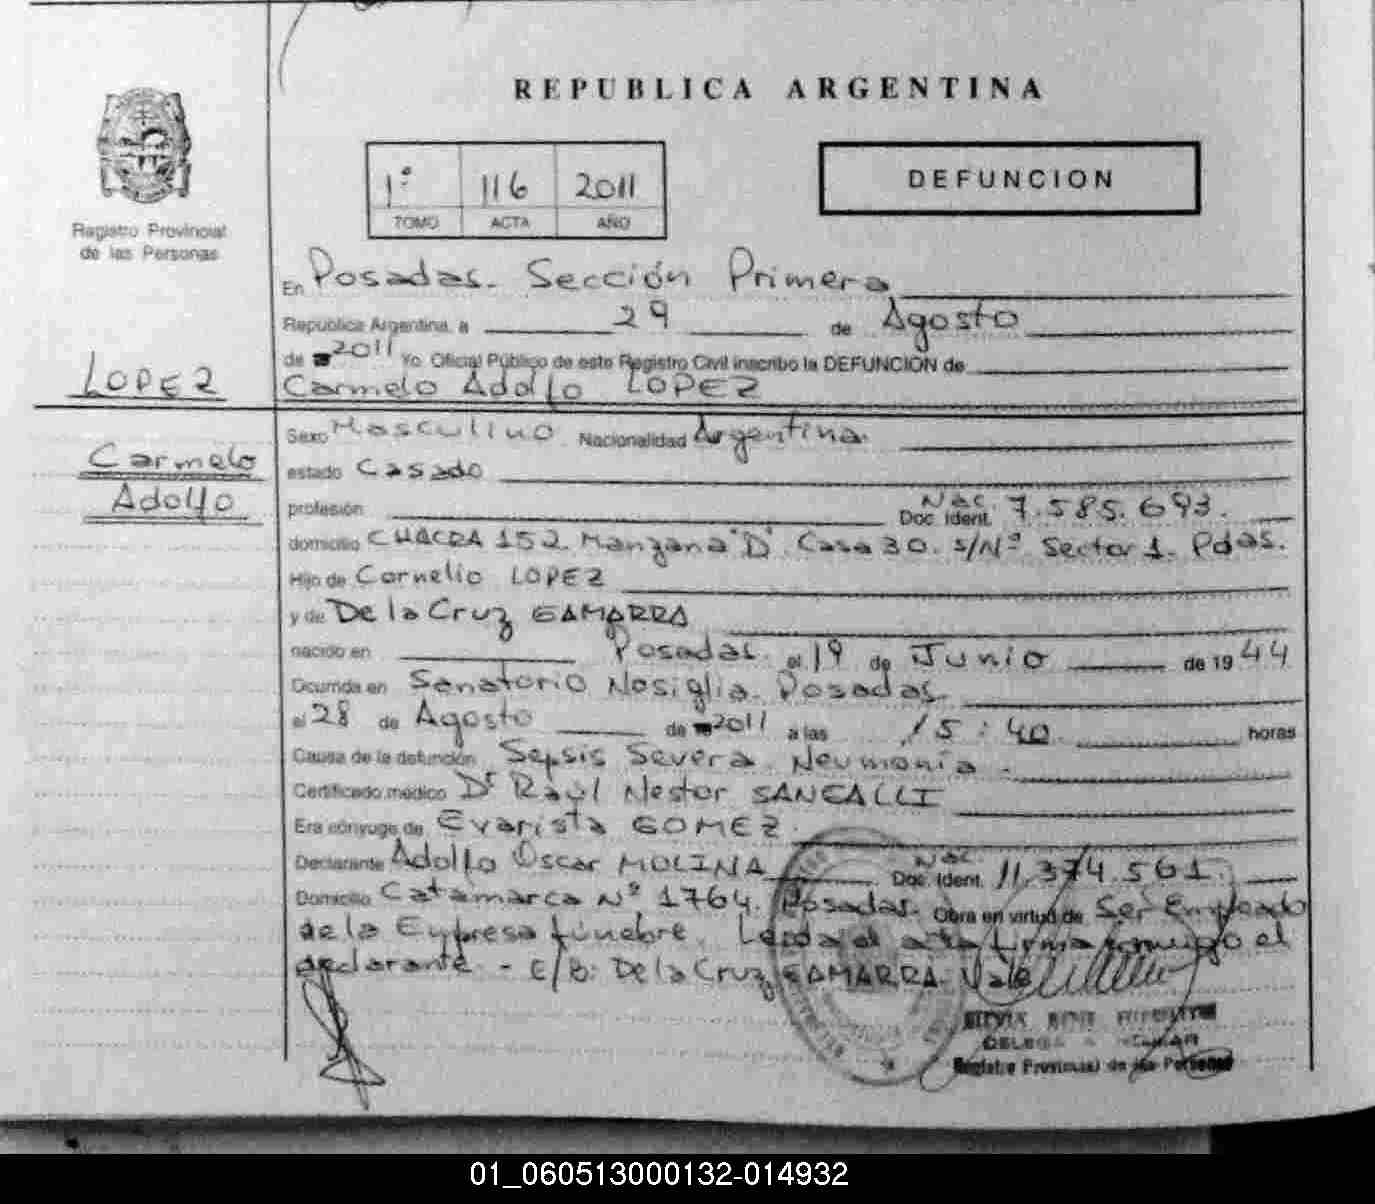 REPUBLICA ARGENTINA
1º 116 2011
TOMO ACTA AÑO
DEFUNCION
Registro Provincial
de las Personas
En Posadas. Sección Primera
República Argentina, a 29 de Agosto
de 2011 Yo Oficial Público de este Registro Civil inscribo la DEFUNCION de
Carmelo Adolfo LOPEZ
LOPEZ
Carmelo
Adolfo
Sexo Masculino Nacionalidad Argentina
estado Casado
profesión Doc. Ident. Nac. 7.585.693.
domicilio CHACRA 152 Manzana "D" Casa 30. s/Nº Sector 1. Pdas.
Hijo de Cornelio LOPEZ
y de De la Cruz GAMARRA
nacido en Posadas. el 19 de Junio de 1944
Ocurrida en Sanatorio Nosiglia. Posadas.
el 28 de Agosto de 2011 a las 15:40 horas
Causa de la defunción Sepsis Severa. Neumonía.
Certificado médico Dr Raúl Nestor
Era cónyuge de Evarista GOMEZ.
Declarante Adolfo Oscar MOLINA Doc. Ident. Nac. 11.374.561.
Domicilio Catamarca Nº 1764. Posadas. Obra en virtud de Ser Empleado
de la Empresa fúnebre. Leida el acta firma conmigo el
declarante - E/B: De la Cruz GAMARRA. Vale
Registro Provincial de las Personas
01_060513000132-014932